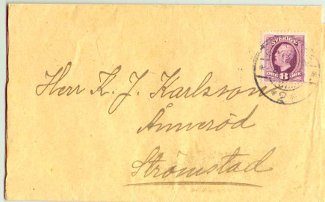 SVERIGE
8
Herr K. J. Karlsson
Änneröd
Strömstad